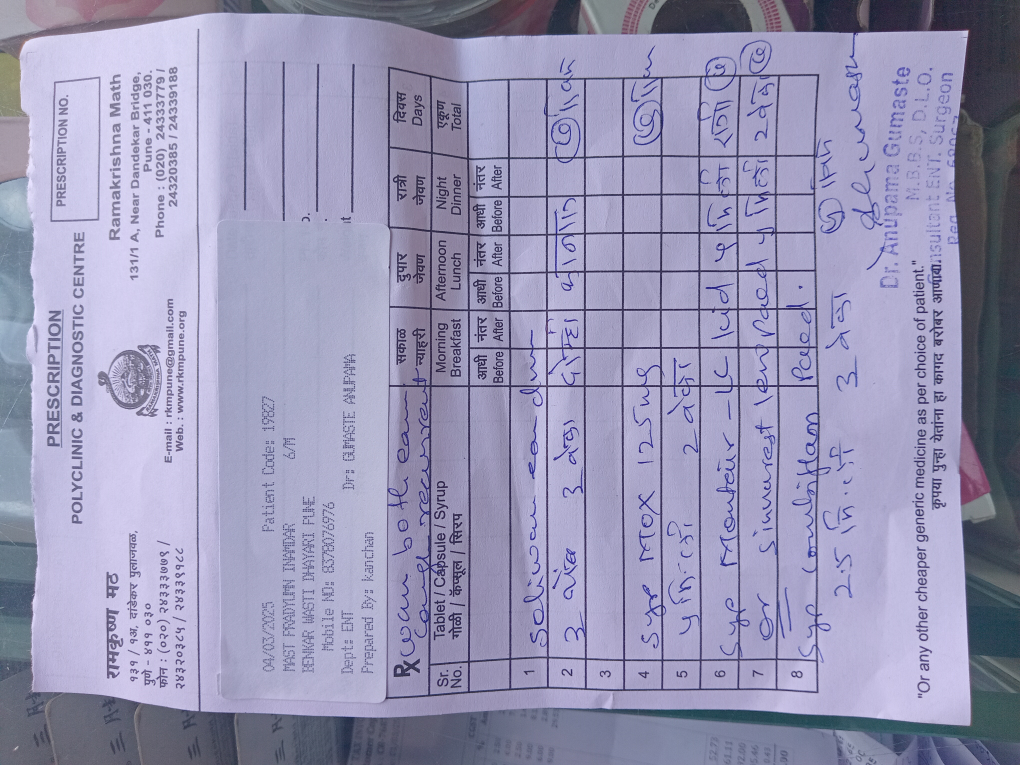 PRESCRIPTION
POLYCLINIC & DIAGNOSTIC CENTRE
PRESCRIPTION NO.
रामकृष्ण मठ
१३१ / १अ, दांडेकर पुलाजवळ,
पुणे - ४११ ०३०
फोन : (०२०) २४३३३७७९ /
२४३२०३८५ / २४३३९१८८
E-mail : rkmpune@gmail.com
Web. : www.rkmpune.org
Ramakrishna Math
131/1 A, Near Dandekar Bridge,
Pune - 411 030.
Phone : (020) 24333779 /
24320385 / 24339188
04/03/2025 Patient Code: 19827
MAST PRADYUMN INAMDAR 6/M
BENKAR WASTI DHAYARI PUNE
Mobile NO: 8378076976
Dept: ENT Dr: GUMASTE ANUPAMA
Prepared By: kanchan
Rx wax both ears
cough recurrent
Sr. No. Tablet / Capsule / Syrup गोळी / कॅप्सूल / सिरप
सकाळ न्याहरी Morning Breakfast
दुपार जेवण Afternoon Lunch
रात्री जेवण Night Dinner
दिवस Days एकूण Total
आधी Before नंतर After आधी Before नंतर After आधी Before नंतर After
1 Soliwax ear drops
2 3 थेंब 3 वेळा दोन्ही कानात
3
4 Syp MOX 125 mg
5 5 मि.ली 2 वेळा
6 Syp Montair-LC kid 5 मिली रात्री
7 or Sinarest Lev Paed 5 मिली 2 वेळा
8 Syp Combiflam Paed.
2.5 मि.ली 3 वेळा
Dr. Anupama Gumaste
M.B.B.S, D.L.O.
Consultant ENT. Surgeon
Reg. No.
"Or any other cheaper generic medicine as per choice of patient."
कृपया पुन्हा येताना हा कागद बरोबर आणावा.